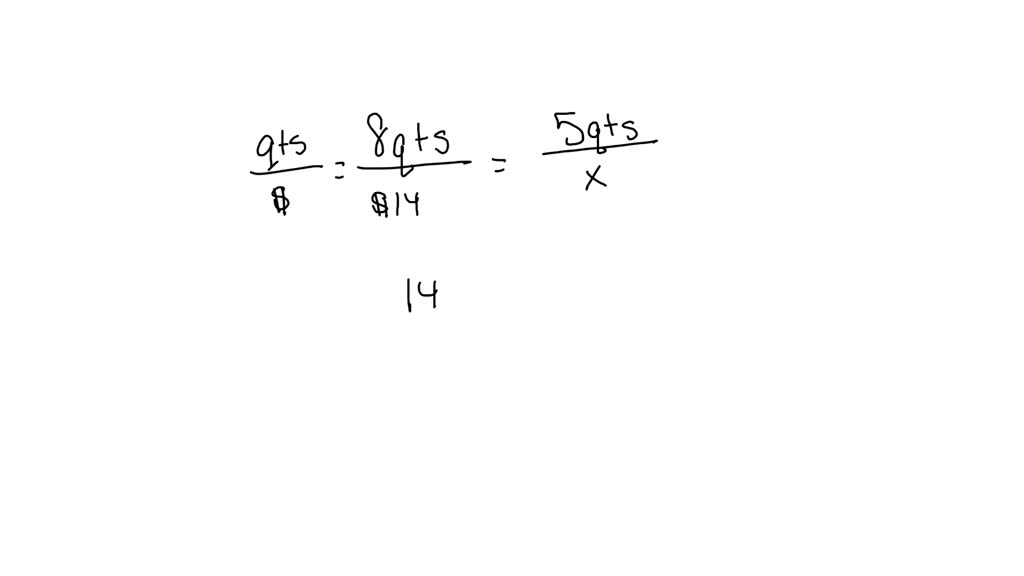 qts/$ = 8qts/$14 = 5qts/x
14